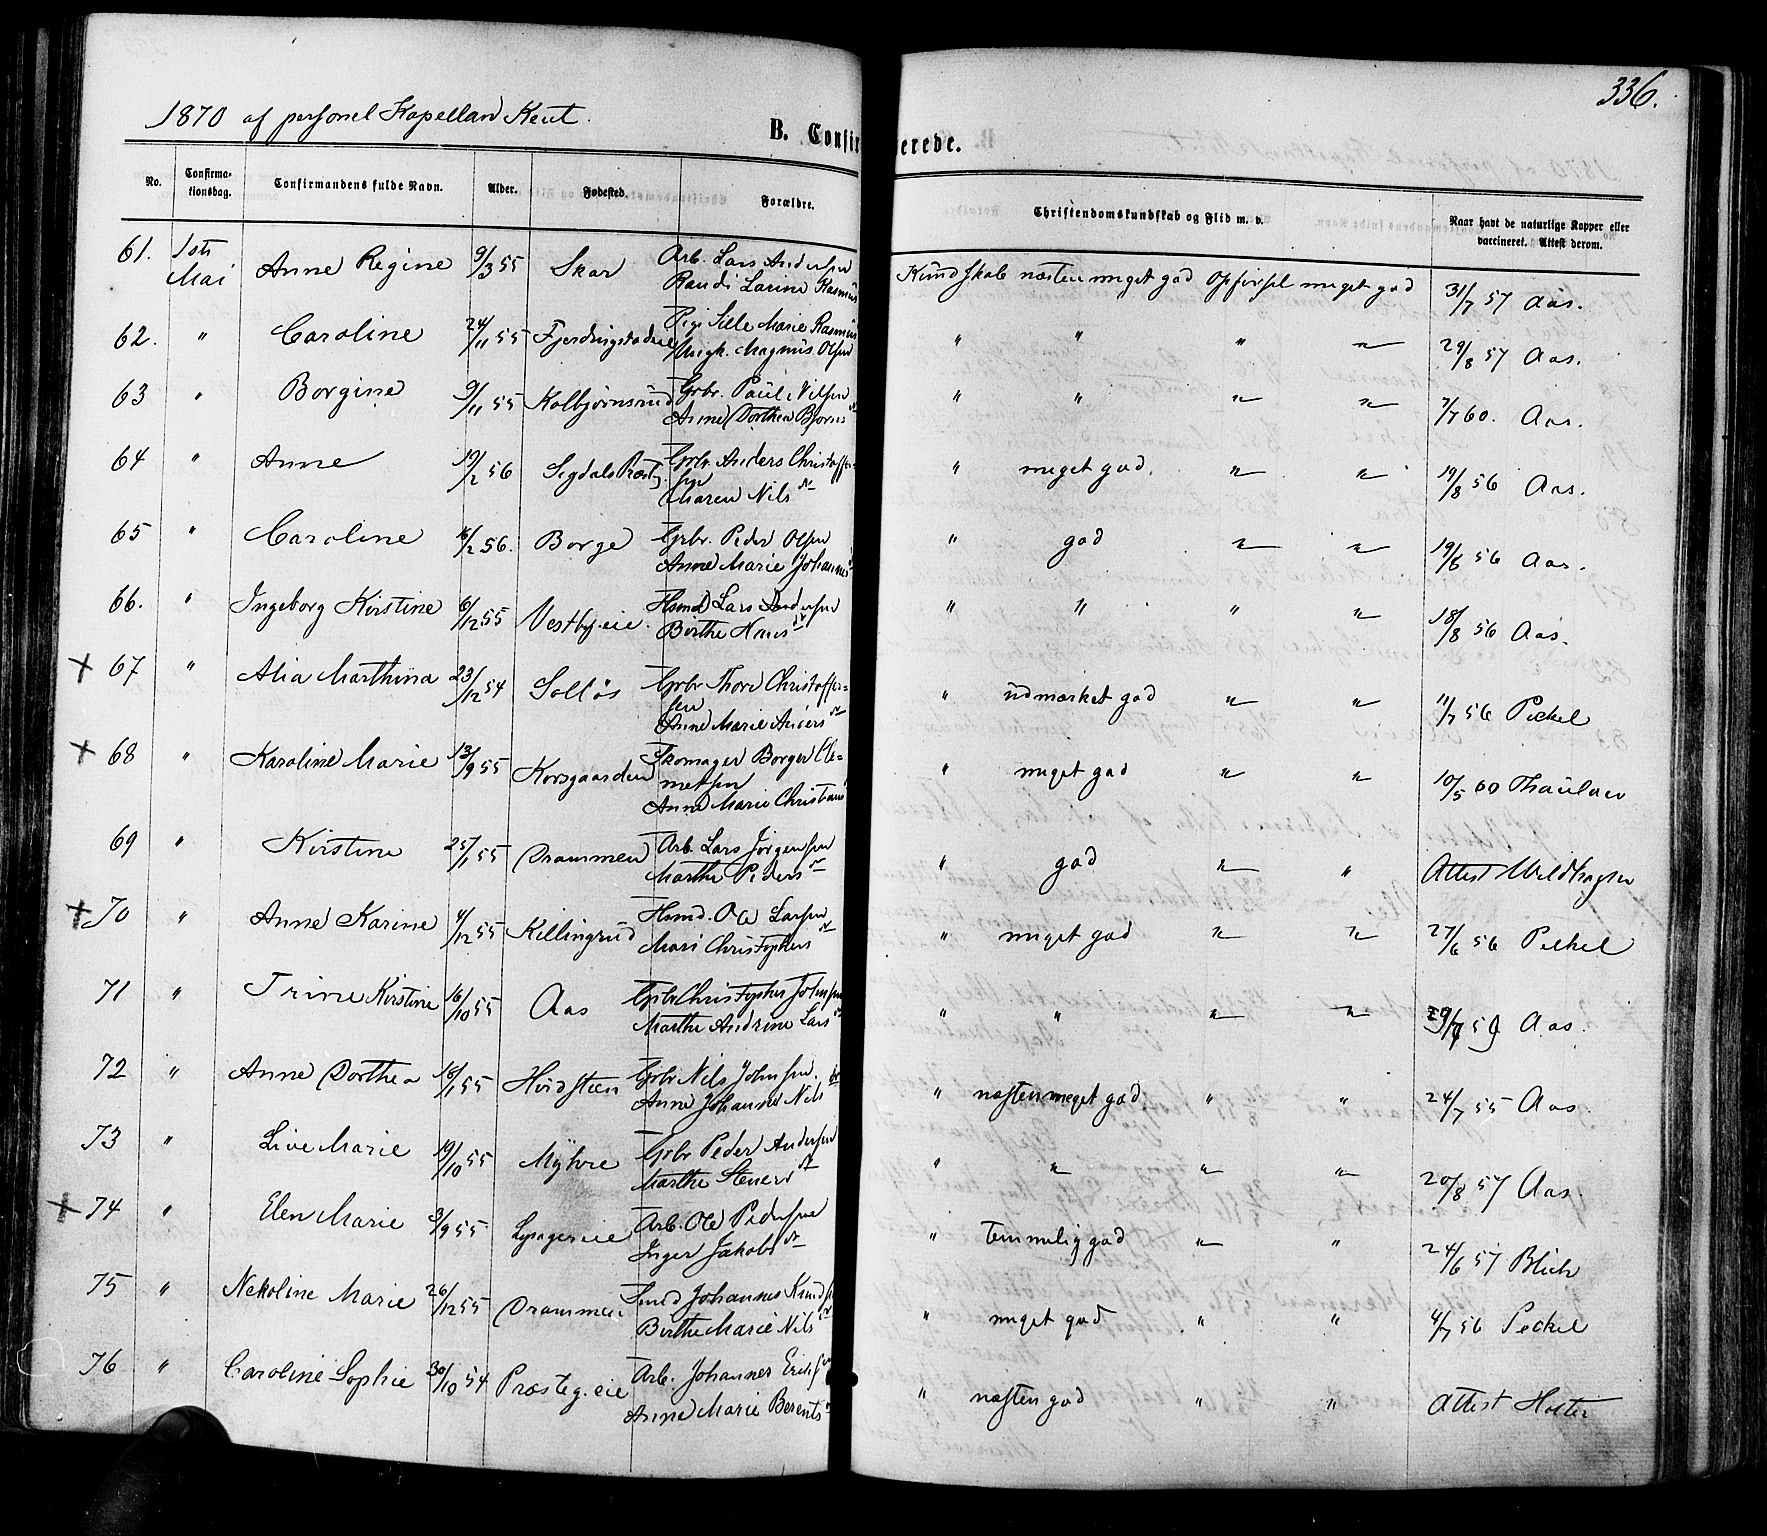 336.
1870 af personel Kapellan Keut.
B. Confirmerede.
No. Confirmationsdag. Confirmandens fulde Navn. Alder. Fødested. Forældre. Christendomskundskab og Flid m. v. Naar havt de naturlige Kopper eller vaccineret. Attest derom.
61. 1ste Mai Anne Regine 9/3 55 Skar Arb. Lars Andersen Kundskab næsten meget god Opførsel meget god 31/7 57 Aas.
Randi Larine Rasmus
62. " Caroline 24/11 55 Pige Sille Marie Rasmus " " " " 29/8 57 Aas.
Ungk. Magnus Olsen
63 " Borgine 9/11 55 Kolbjørnsrud Grbr. Paul Nilsen " " " " 7/7 60. Aas.
Anne Dorthea Bjørns
64 " Anne 19/2 56 Sigdals Præstg. Grbr Anders Christoffer- " meget god. " " 19/8 56 Aas.
sen
Maren Nils dr
65 " Caroline 16/2 56. Borge Grbr. Peder Olsen " god " " 19/8 56 Aas.
Anne Marie Johannes
66. " Ingeborg Kirstine 6/12 55 Vestby.eie. Hsmd Lars Andersen " " " " 18/8 56 Aas.
Birthe Hans dr
+ 67 " Alia Marthina 23/12 54 Solløs Grbr Thore Christoffer- " udmærket god " " 11/7 56 Peckel
sen
Anne Marie Anders dr
+ 68 " Karoline Marie 13/9 55 Korsgaarden Skomager Borger Cle- " meget god " " 10/5 60 Thaulow
metsen
Anne Marie Christians
69 " Kirstine 25/1 55 Drammen Arb. Lars Jørgensen " god " " Attest Wildhagen
Marthe Peders dr
+ 70 " Anne Karine 4/12 55 Killingrud Hsmd. Ole Larsen " meget god " " 27/6 56 Peckel
Mari Christophers dr
71 " Trine Kirstine 16/10 55 Aas Grbr Christopher Johnsen " " " " Aas.
Marthe Andrine Lars dr
72 " Anne Dorthea 16/1 55 Hvidsteen Grbr Nils Johnsen. " næsten meget god " " 24/7 55 Aas.
Anne Johanne Nils dr
73 " Live Marie 19/10 55 Myhre Grbr Peder Andersen " " " " 20/8 57 Aas.
Marthe Steners dr
+ 74 " Elen Marie 3/9 55 Lysagereie Arb. Ole Pedersen " temmelig god " " 24/6 57 Blich
Inger Jakobs dr
75 " Nekoline Marie 26/12 55 Drammen Smed Johannes Knuds " meget god " " 4/7 56 Peckel
Birthe Marie Nils dr
76 " Caroline Sophie 30/10 54 Præsteg.eie Arb. Johannes Eriksen " næsten god " " Attest Holter
Anne Marie Berents